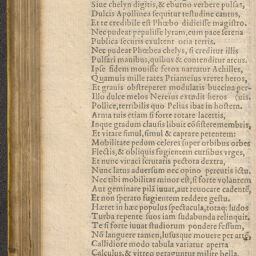 Siue chelyn digitis, & eburno verbere pulsas,
Dulcis Apollinea sequitur testudine cantus,
Et te credibile est Phœbo didicisse magistro.
Nec pudeat pepulisse lyram, cum pace serena
Publica securis exultent otia terris.
Nec pudeat Phœbea chelys, si creditur illis
Pulsari manibus, quibus & contenditur arcus.
Ipse fidem mouisse ferox narratur Achilles,
Quamuis mille rates Priameius vreret heros,
Et grauis obstreperet modulatis buccina ner-
Illo dulce melos Nereius extudit heros
Pollice, terribilis quo Pelias ibat in hostem.
Arma tuis etiam si forte rotare lacertis,
Inque gradum clausis libuit consistere membris,
Et vitare simul, simul & captare petentem:
Mobilitate pedum celeres super orbibus orbes
Flectis, & obliquis fugientem cursibus vrges,
Et nunc viuaci scrutaris pectora dextra,
Nunc latus aduersum nec opino percutis ictu.
Nec tibi mobilitas minor est, si forte volantem
Aut geminare pila iuuat, aut reuocare cadentē,
Et non sperato fugientem reddere gestu.
Hæret in hæc populus spectacula, totaq; ludos
Turba repente suos iam sudabunda relinquit.
Te si forte iuuat studiorum pondere fessum,
Nō languere tamen, lususque mouere per artē,
Callidiore modo tabula variatur aperta
Calculus, & vitreo peraguntur milite bella.